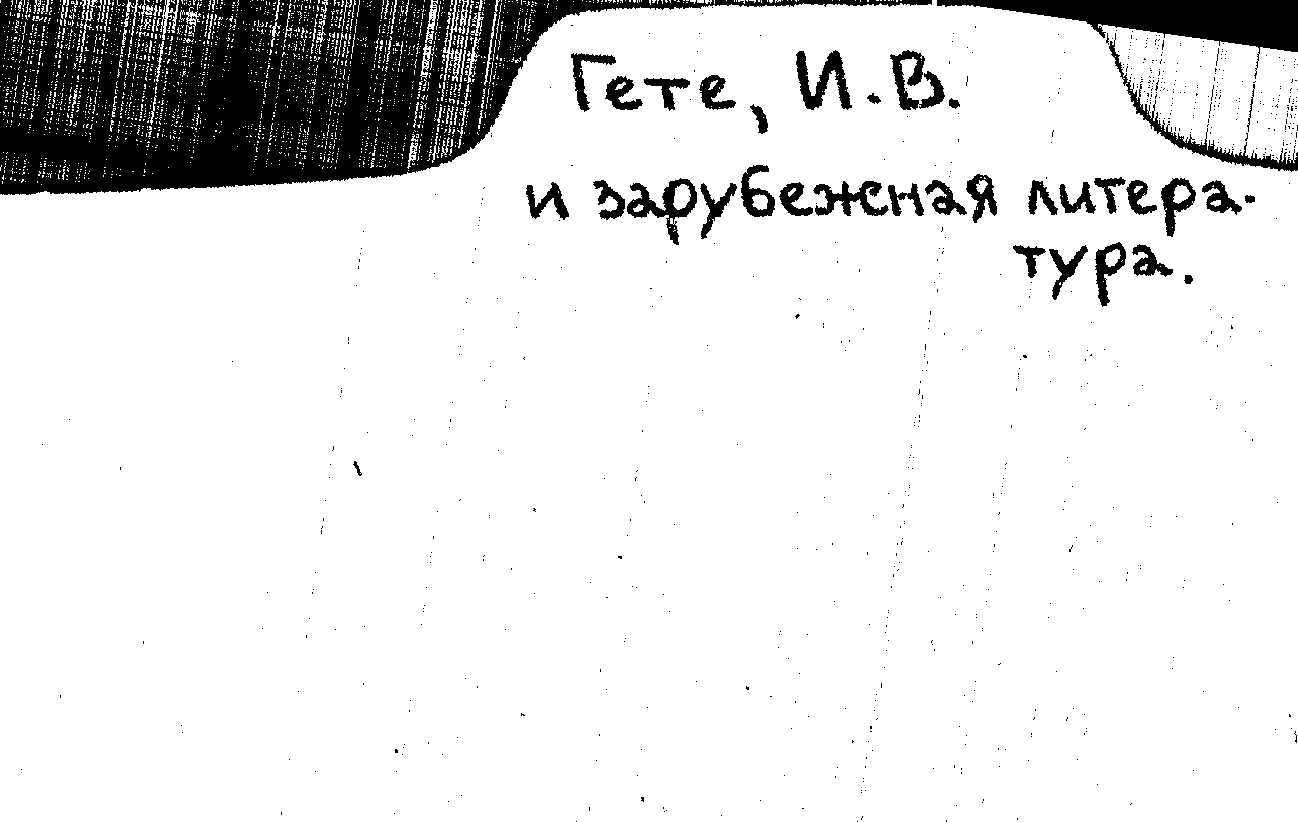 Гете, И.В.
и зарубежная литера-
тура.